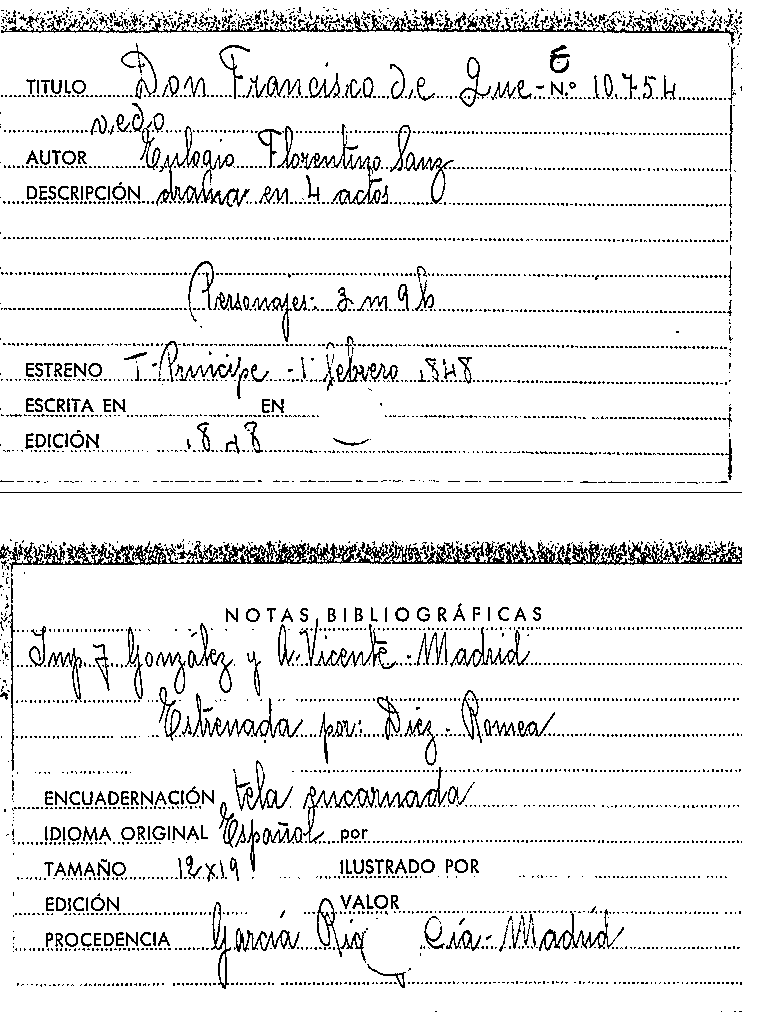 E
TITULO Don Francisco de Que- N.º 10.754
vedo
AUTOR Eulogio Florentino Sanz
DESCRIPCIÓN drama en 4 actos
Personajes: 3 m 9 h
ESTRENO T. Principe - 1 febrero 1848
ESCRITA EN EN
EDICIÓN 1848
NOTAS BIBLIOGRÁFICAS
Imp. J González y A. Vicente - Madrid
Estrenada por: Diez - Romea
ENCUADERNACIÓN tela encarnada
IDIOMA ORIGINAL Español por
TAMAÑO 12x19 ILUSTRADO POR
EDICIÓN VALOR
PROCEDENCIA García Rico Cía - Madrid